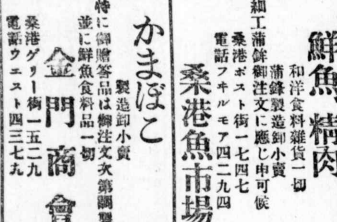 鮮魚、精肉
和洋食料雜貨一切
蒲鉾製造卸小賣
細工蒲鉾御注文に應じ申可候
桑港ポスト街一七四七
電話フキルモア四二九四
桑港魚市場
かまぼこ
製造卸小賣
特に御贈答品は御注文次第調製
並に鮮魚食料品一切
金門商會
桑港ゲリー街一五二九
電話ウエスト四三七九